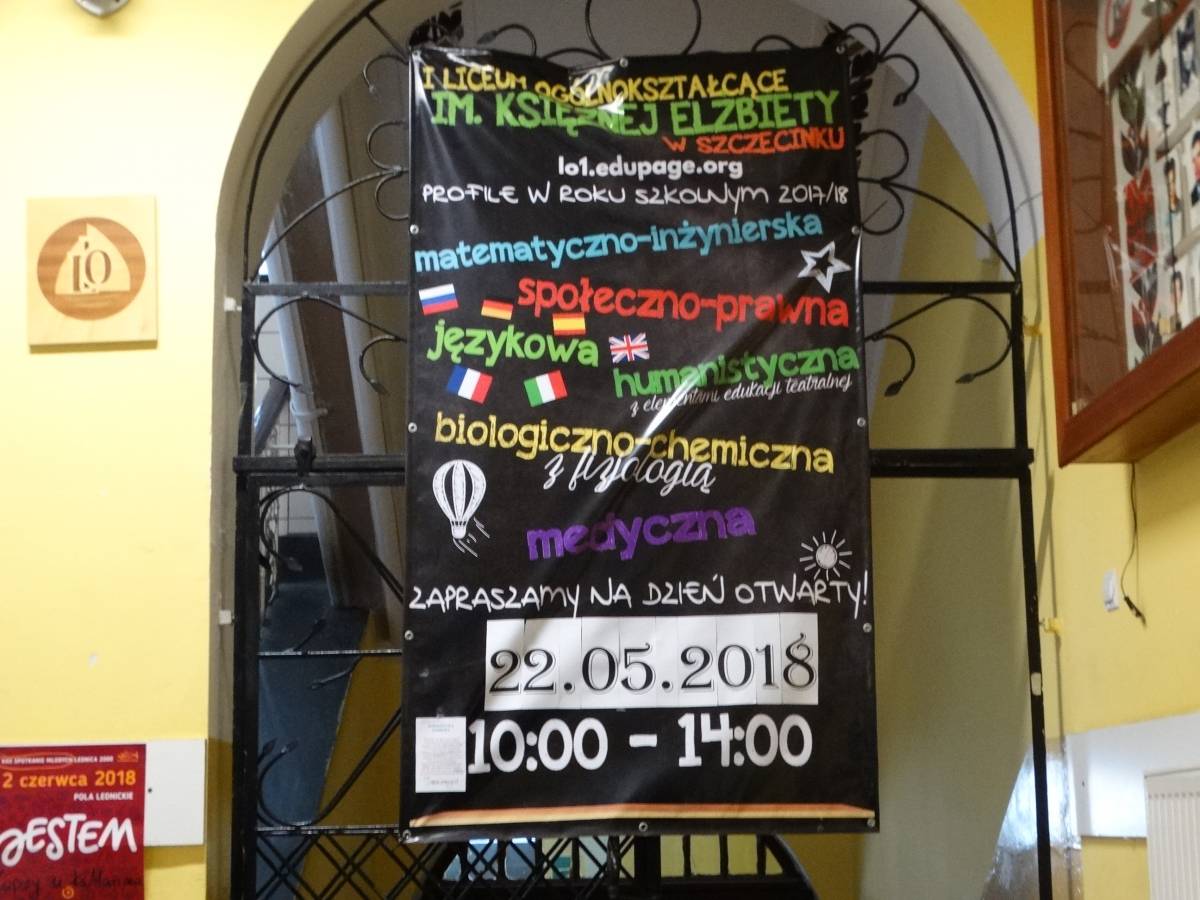 I LICEUM OGÓLNOKSZTAŁCĄCE
IM. KSIĘŻNEJ ELŻBIETY
W SZCZECINKU
lo1.edupage.org
PROFILE W ROKU SZKOLNYM 2017/18
matematyczno-inżynierska
społeczno-prawna
językowa
humanistyczna
z elementami edukacji teatralnej
biologiczno-chemiczna
z fizjologią
medyczna
ZAPRASZAMY NA DZIEŃ OTWARTY!
22.05.2018
10:00 - 14:00
SPOTKANIE MŁODYCH LEDNICA 2000
2 czerwca 2018
POLA LEDNICKIE
JESTEM